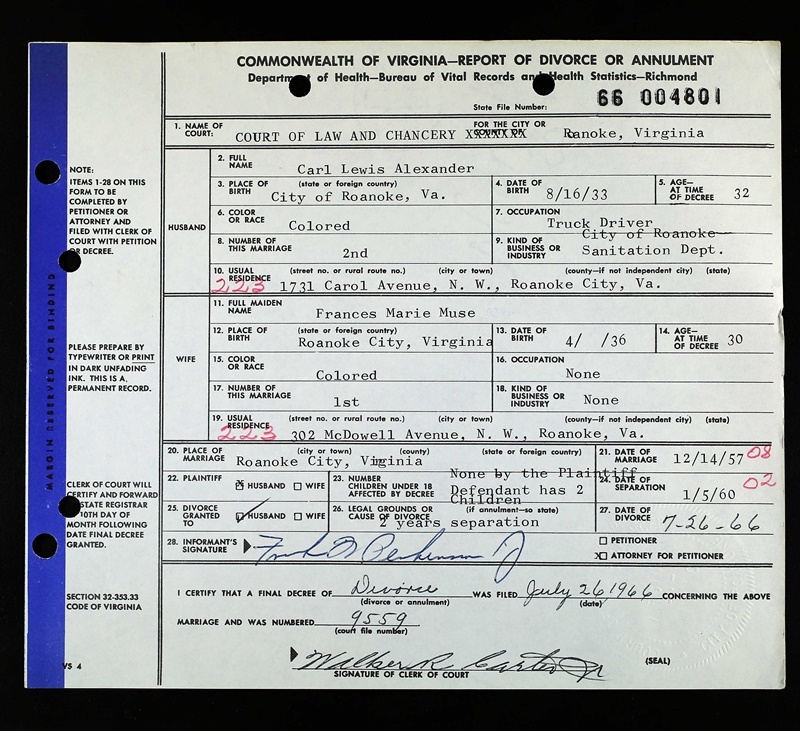 COMMONWEALTH OF VIRGINIA—REPORT OF DIVORCE OR ANNULMENT
Department of Health—Bureau of Vital Records and Health Statistics—Richmond
State File Number: 66 004801
1. NAME OF COURT: COURT OF LAW AND CHANCERY XXXXXXX FOR THE CITY OR COUNTY OF Roanoke, Virginia
NOTE:
ITEMS 1-28 ON THIS
FORM TO BE
COMPLETED BY
PETITIONER OR
ATTORNEY AND
FILED WITH CLERK OF
COURT WITH PETITION
OR DECREE.
PLEASE PREPARE BY
TYPEWRITER OR PRINT
IN DARK UNFADING
INK. THIS IS A
PERMANENT RECORD.
CLERK OF COURT WILL
CERTIFY AND FORWARD
STATE REGISTRAR
10TH DAY OF
MONTH FOLLOWING
DATE FINAL DECREE
GRANTED.
SECTION 32-353.33
CODE OF VIRGINIA
VS 4
MARGIN RESERVED FOR BINDING
HUSBAND
2. FULL NAME Carl Lewis Alexander
3. PLACE OF BIRTH (state or foreign country) City of Roanoke, Va.
4. DATE OF BIRTH 8/16/33
5. AGE— AT TIME OF DECREE 32
6. COLOR OR RACE Colored
7. OCCUPATION Truck Driver
8. NUMBER OF THIS MARRIAGE 2nd
9. KIND OF BUSINESS OR INDUSTRY City of Roanoke Sanitation Dept.
10. USUAL RESIDENCE (street no. or rural route no.) (city or town) (county—if not independent city) (state)
223 1731 Carol Avenue, N. W., Roanoke City, Va.
WIFE
11. FULL MAIDEN NAME Frances Marie Muse
12. PLACE OF BIRTH (state or foreign country) Roanoke City, Virginia
13. DATE OF BIRTH 4/ /36
14. AGE— AT TIME OF DECREE 30
15. COLOR OR RACE Colored
16. OCCUPATION None
17. NUMBER OF THIS MARRIAGE 1st
18. KIND OF BUSINESS OR INDUSTRY None
19. USUAL RESIDENCE (street no. or rural route no.) (city or town) (county—if not independent city) (state)
223 302 McDowell Avenue, N. W., Roanoke, Va.
20. PLACE OF MARRIAGE (city or town) (county) (state or foreign country) Roanoke City,
21. DATE OF MARRIAGE 12/14/57 08
22. PLAINTIFF X HUSBAND WIFE
23. NUMBER CHILDREN UNDER 18 AFFECTED BY DECREE None by the Plaintiff Defendant has 2 Children
24. DATE OF SEPARATION 1/5/60 02
25. DIVORCE GRANTED TO HUSBAND WIFE
26. LEGAL GROUNDS OR CAUSE OF DIVORCE (if annulment—so state) 2 years separation
27. DATE OF DIVORCE 7-26-66
28. INFORMANT'S SIGNATURE
PETITIONER
X ATTORNEY FOR PETITIONER
I CERTIFY THAT A FINAL DECREE OF Divorce WAS FILED July 26, 1966 CONCERNING THE ABOVE
(divorce or annulment) (date)
MARRIAGE AND WAS NUMBERED 9559
(court file number)
Walker R. Carter Jr
(SEAL)
SIGNATURE OF CLERK OF COURT